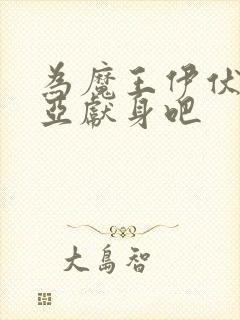 為魔王伊伏
亞獻身吧
大島智